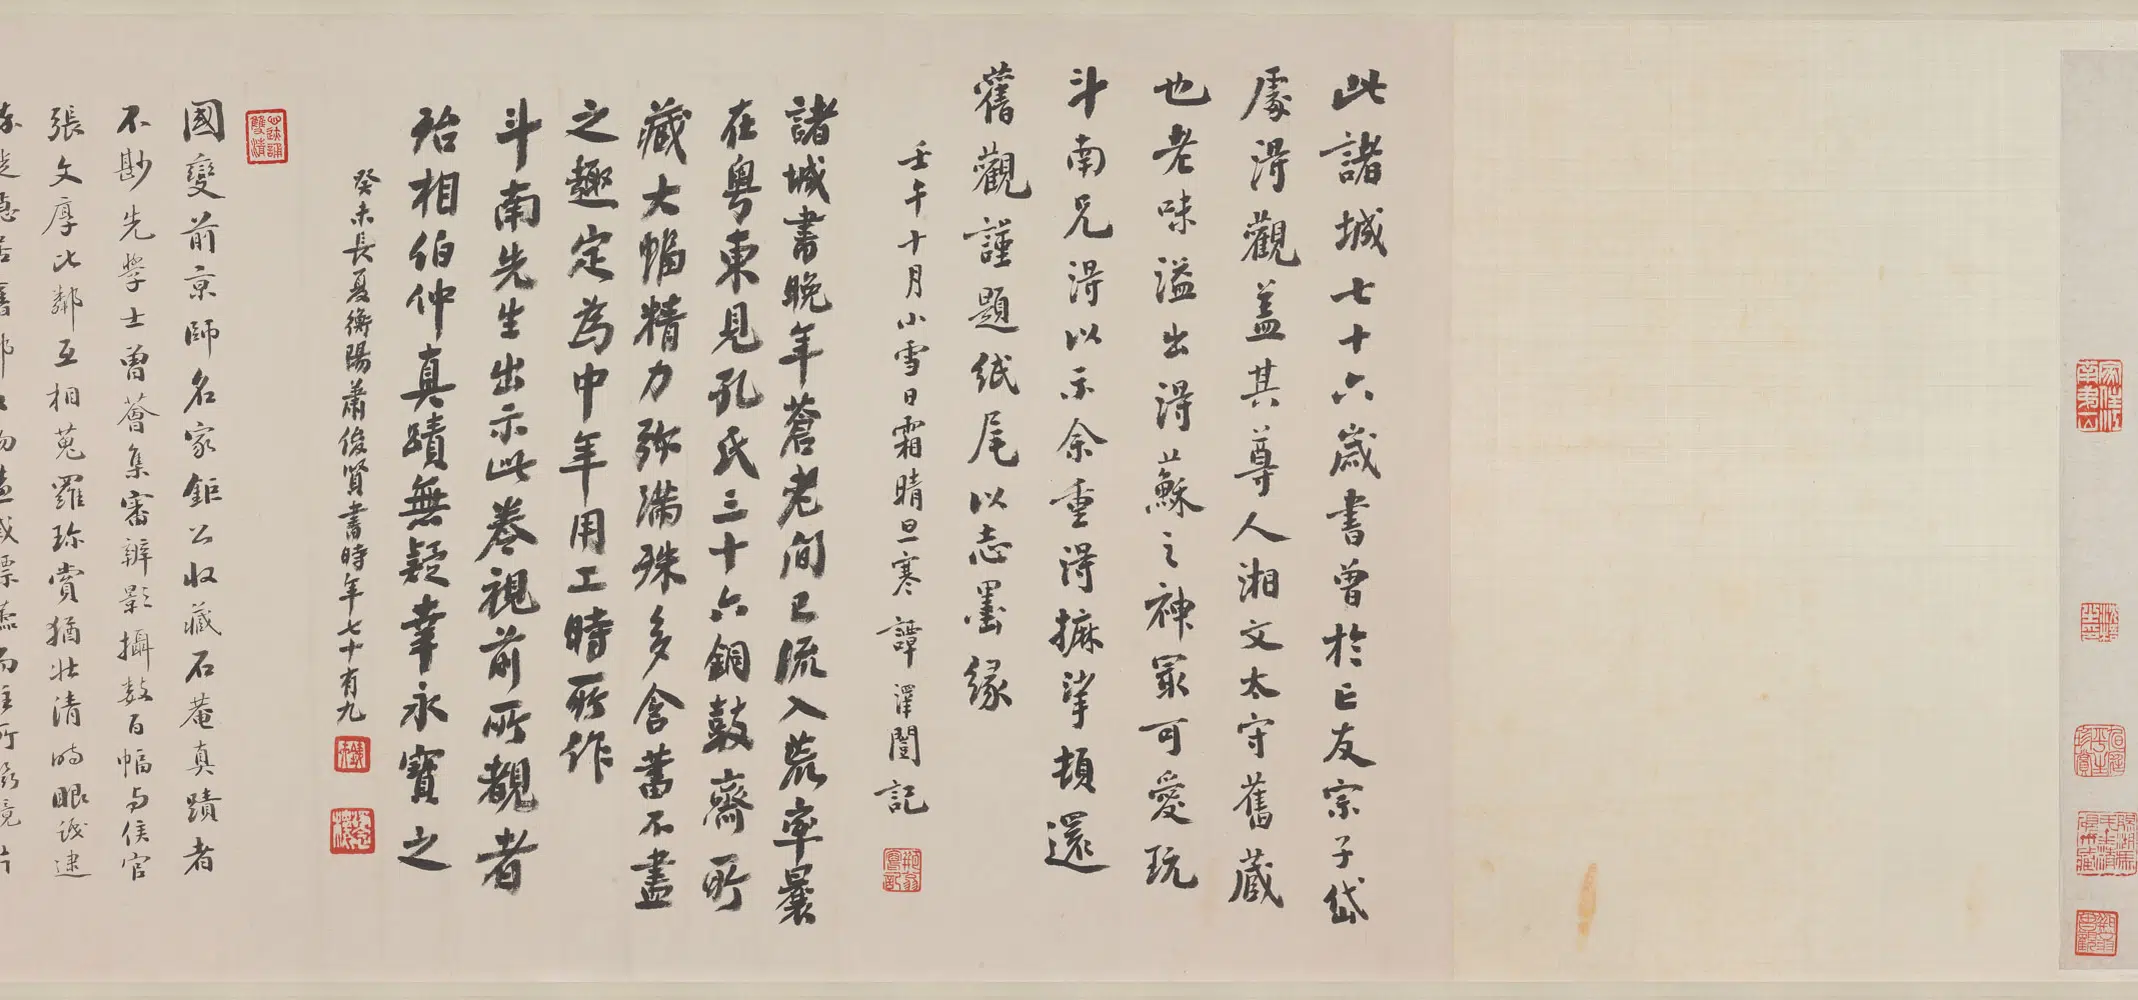 此諸城七十六歲書曾於亡友宗子岱
處得觀蓋其尊人湘文太守舊藏
也老味溢出得蘇之神最可愛玩
斗南兄得以示余重得摩挲頓還
舊觀謹題紙尾以志墨緣
壬午十月小雪日霜晴旦寒 譚澤闓記
諸城書晚年蒼老間已流入荒率曩
在粵東見孔氏三十六銅鼓齋所
藏大幅精力弥滿殊多含蓄不盡
之趣定為中年用工時所作
斗南先生出示此卷視前所覯者
殆相伯仲真蹟無疑幸永寶之
癸未長夏衡陽蕭俊賢書時年七十有九
國變前京師名家鉅公收藏石菴真蹟者
不尠先學士曾薈集審辨影攝數百幅与侯官
張文厚比鄰互相蒐羅珍賞猶壯清時眼識逮